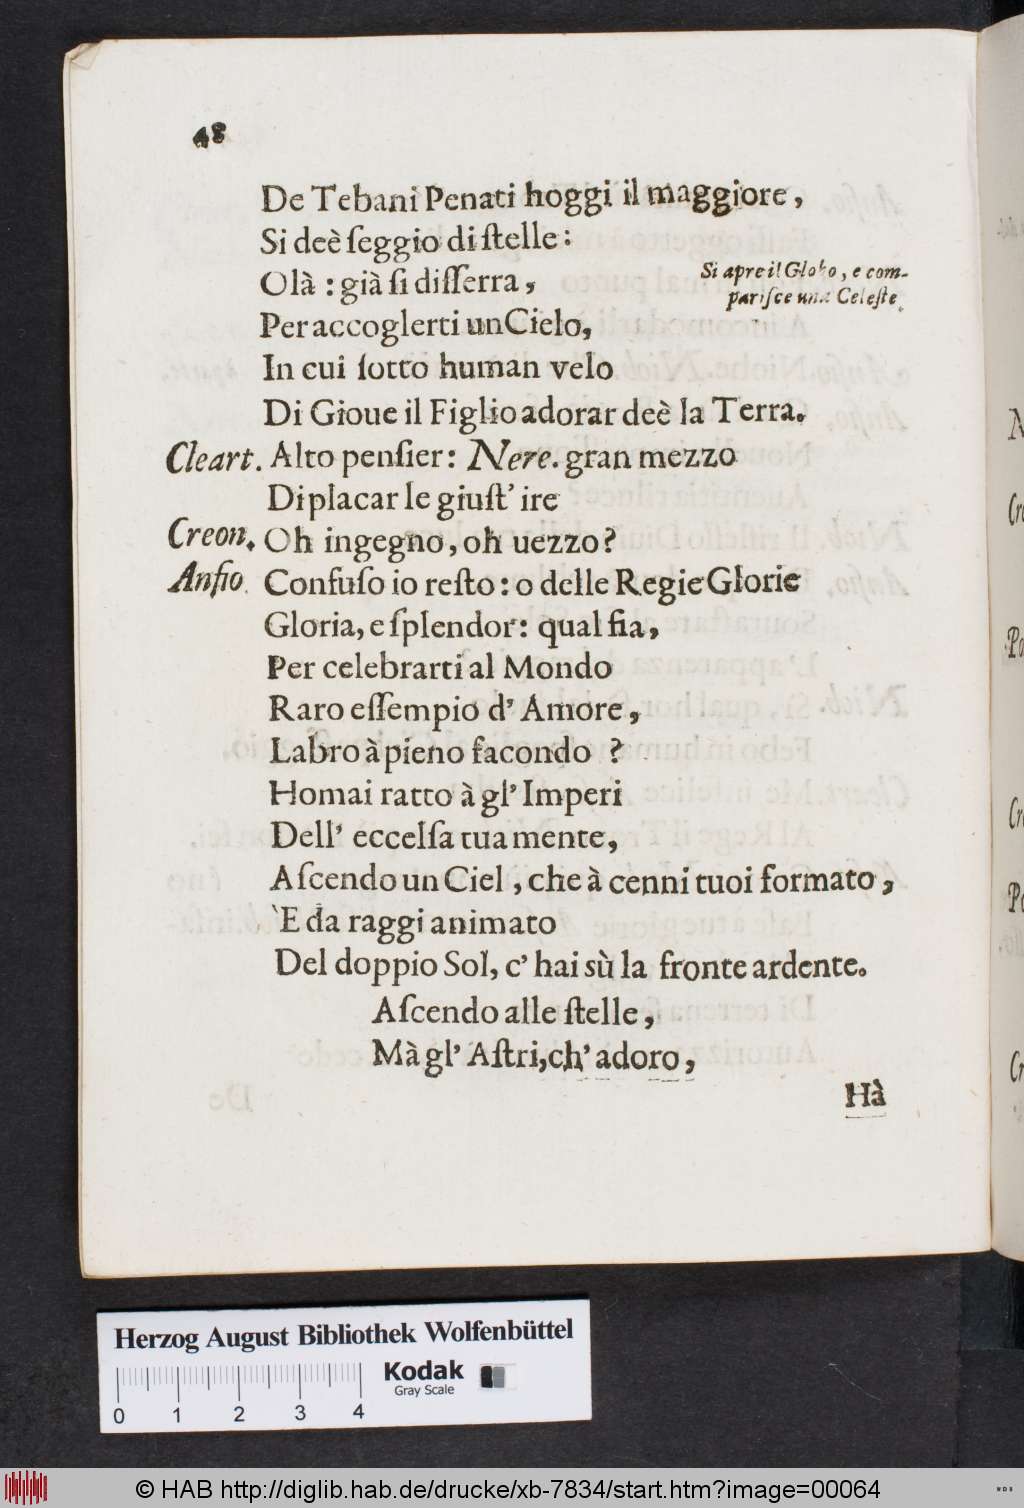 48
De Tebani Penati hoggi il maggiore,
Si deè ſeggio di ſtelle:
Olà : già ſi diſſerra,
Si apre il Globo, e com-
pariſce una Celeſte.
Per accoglerti un Cielo,
In cui ſotto human velo
Di Gioue il Figlio adorar deè la Terra.
Cleart. Alto penſier: Nere. gran mezzo
Di placar le giuſt' ire
Creon. Oh ingegno, oh uezzo?
Anfio. Confuſo io reſto: o delle Regie Glorie
Gloria, e ſplendor: qual fia,
Per celebrarti al Mondo
Raro eſſempio d' Amore,
Labro à pieno facondo ?
Homai ratto à gl' Imperi
Dell' eccelſa tua mente,
Aſcendo un Ciel, che à cenni tuoi formato,
'E da raggi animato
Del doppio Sol, c' hai sù la fronte ardente.
Aſcendo alle ſtelle,
Mà gl' Aſtri, ch' adoro,
Hà
Herzog August Bibliothek Wolfenbüttel
Kodak
Gray Scale
0 1 2 3 4
© HAB http://diglib.hab.de/drucke/xb-7834/start.htm?image=00064